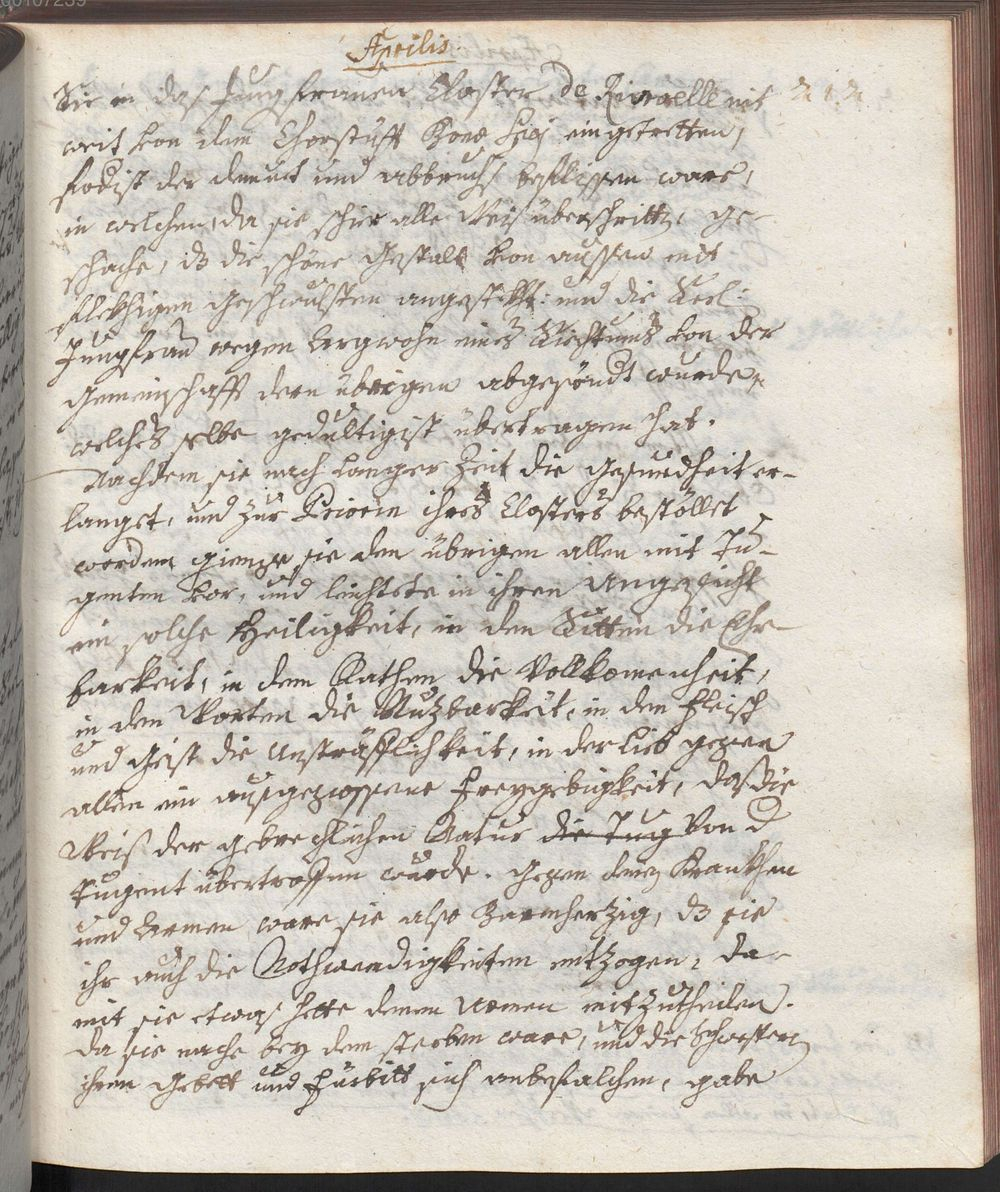 00107239
Aprilis.
Sie in das Jungfrauen Closter de Rivroelle nit 212
weit von dem Chorstüfft Bonæ Spei eingetretten,
höchst der demut und abbruchs beflissen ware,
in welchem, da sie schier alle Weis überschritte, ge-
schache, dz die schöne Gestalt von aussen mit
fleckhigen Geschwulsten angesteckht: und die Seel:
Jungfrau wegen Argwohn eines Siechtums von der
Gemeinschafft dern übrigen abgesöndt wurde,
welches selbe gedultigist übertragen hat.
Nachdem sie nach langer Zeit die Gesundheit er-
langet, und zur Priorin ihres Closters bestöllet
worden, gienge sie den übrigen allen mit Tu-
genten vor, und leichtete in ihren Angesicht
ein solche Heiligkeit, in den Sitten die Ehr-
barkeit, in dem Rathen die Vollkomenheit,
in den Worten die Nuzbarkeit, in dem Fleisch
und Geist die Unsträfflichkeit, in der Lieb gegen
allen ein ausgegossene Freygebigkeit, das die
Weiß der gebrechlichen Natur die Tug von d
Tugent übertroffen wurde. Gegen denen Krankhen
und Armen ware sie also Barmherzig, dz sie
ihr auch die Nothwendigkeiten entzogen, da-
mit sie etwas hette denen Armen mitzutheilen.
Da sie nache bey dem sterben ware, und die Schwestern
ihrem Gebett und Fürbitt sich anbefalchen, gabe